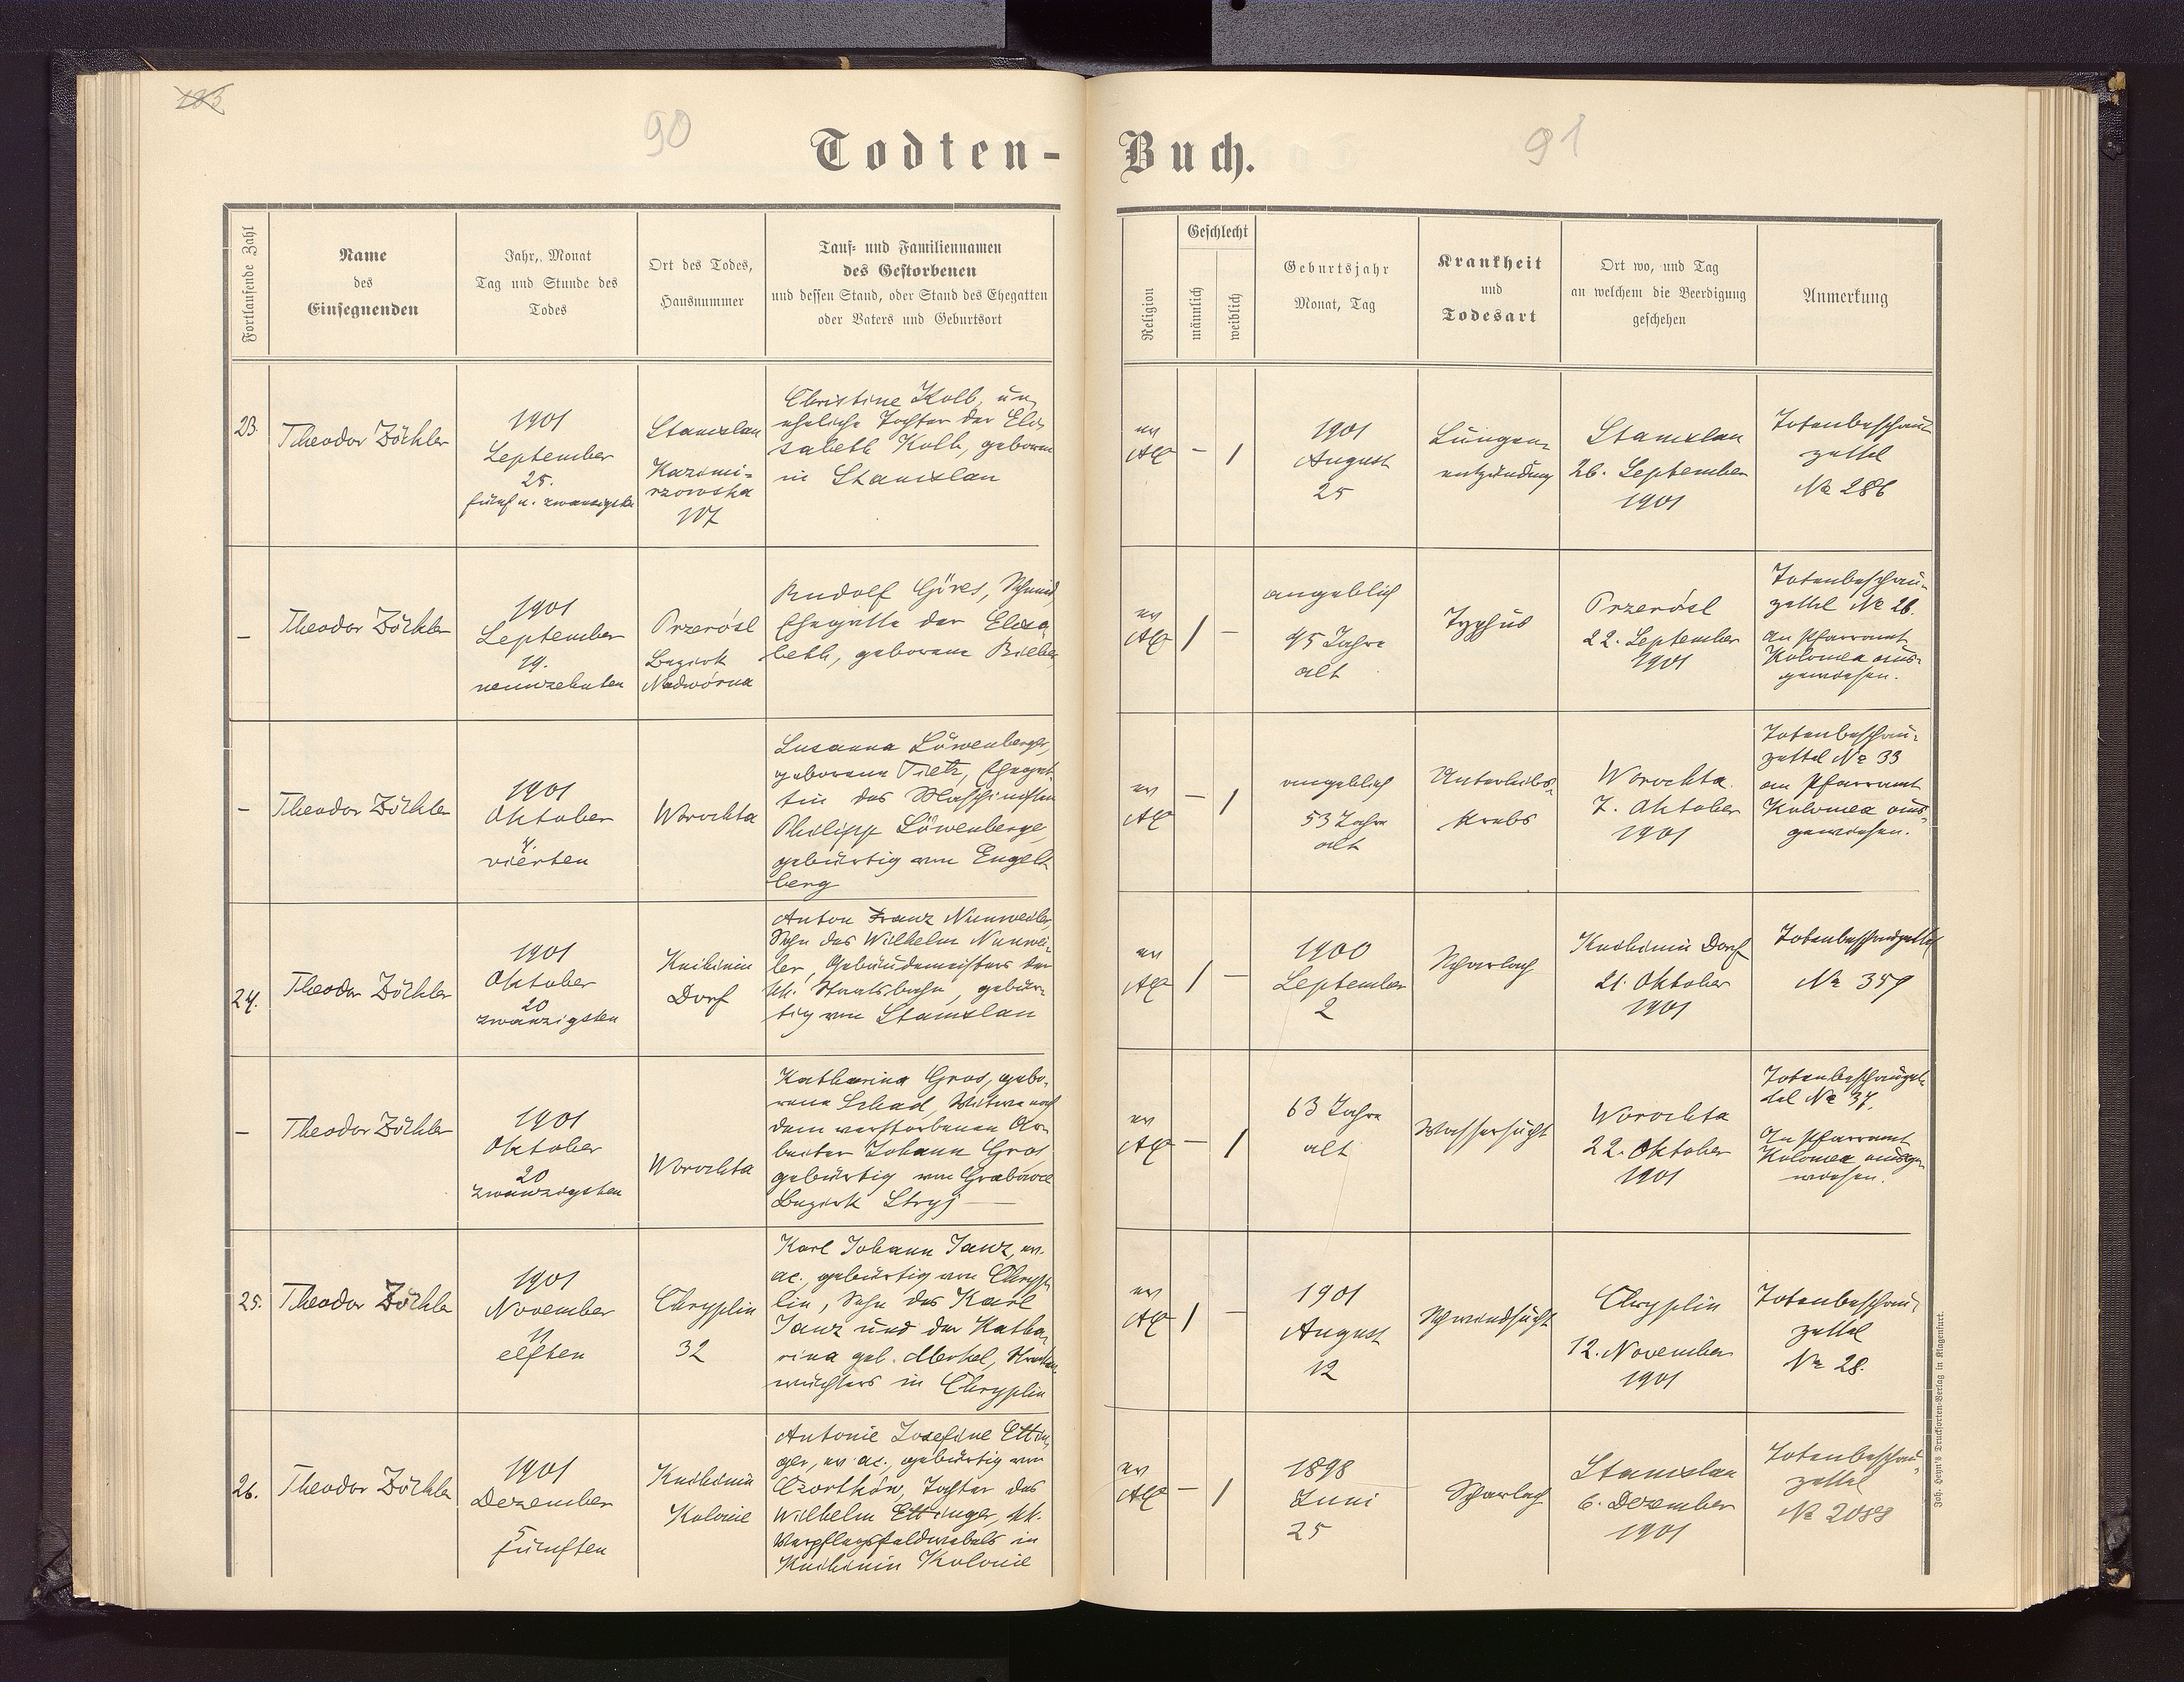 123
90
91
Todten-
Buch.
Fortlaufende Zahl
Name
des
Einsegnenden
Jahr, Monat
Tag und Stunde des
Todes
Ort des Todes,
Hausnummer
Tauf- und Familiennamen
des Gestorbenen
und dessen Stand, oder Stand des Ehegatten
oder Vaters und Geburtsort
Religion
Geschlecht
männlich
weiblich
Geburtsjahr
Monat, Tag
Krankheit
und
Todesart
Ort wo, und Tag
an welchem die Beerdigung
geschehen
Anmerkung
23.
Theodor Zöckler
1901
September
25.
fünf u. zwanzigste
Stanislau
Kazimi-
rzowska
107
Christine Kolb, un-
eheliche Tochter der Eli-
sabeth Kolb, geboren
in Stanislau
ev
AC
–
1
1901
August
25
Lungen-
entzündung
Stanislau
26. September
1901
Totenbeschau-
zettel
№ 286
–
Theodor Zöckler
1901
September
19.
neunzehnten
Przerósl
Bezirk
Nadwórna
Rudolf Göres, Schmied,
Ehegatte der Elisa-
beth, geborene
ev
AC
1
–
angeblich
45 Jahre
alt
Typhus
Przerósl
22. September
1901
Totenbeschau-
zettel № 26.
An Pfarramt
Kolomea aus-
gewiesen.
–
Theodor Zöckler
1901
Oktober
4.
vierten
Worochta
Susanna Löwenberger,
geborene Tietz, Ehegat-
tin des Maschinisten
Philipp Löwenberger,
gebürtig von Engels-
berg
ev
AC
–
1
angeblich
53 Jahre
alt
Unterleibs-
krebs
Worochta
7. Oktober
1901
Totenbeschau-
zettel № 33
an Pfarramt
Kolomea aus-
gewiesen.
24.
Theodor Zöckler
1901
Oktober
20
zwanzigsten
Knihinin
Dorf
Anton Franz Nunweiler,
Sohn des Wilhelm Nunwei-
ler, Gebäudemeisters der
kk. Staatsbahn, gebür-
tig von Stanislau
ev
AC
1
–
1900
September
2
Scharlach
Knihinin Dorf
21. Oktober
1901
Totenbeschauzettel
№ 359
–
Theodor Zöckler
1901
Oktober
20
zwanzigsten
Worochta
Katharina Gros, gebo-
rene Schad, Witwe nach
dem verstorbenen Ar-
beiter Johann Gros,
gebürtig von Grabowce
Bezirk Stryj
ev
AC
–
1
63 Jahre
alt
Wassersucht
Worochta
22. Oktober
1901
Totenbeschauzet-
tel № 37.
An Pfarramt
Kolomea ausge-
wiesen.
25.
Theodor Zöckler
1901
November
11
elften
Chryplin
32
Karl Johann Janz, ev.
ac., gebürtig von Chryp-
lin, Sohn des Karl
Janz und der Katha-
rina geb. Merkel, Strecken-
wächters in Chryplin
ev
AC
1
–
1901
August
12
Schwindsucht
Chryplin
12. November
1901
Totenbeschau-
zettel
№ 28.
26.
Theodor Zöckler
1901
Dezember
5
fünften
Knihinin
Kolonie
Antonie Josefine Ettin-
ger, ev. ac., gebürtig von
Czortków, Tochter des
Wilhelm Ettinger, kk.
Verpflegsfeldwebels in
Knihinin Kolonie
ev
AC
–
1
1898
Juni
25
Scharlach
Stanislau
6. Dezember
1901
Totenbeschau-
zettel
№ 2088
Joh. Heyn's Drucksorten-Verlag in Klagenfurt.